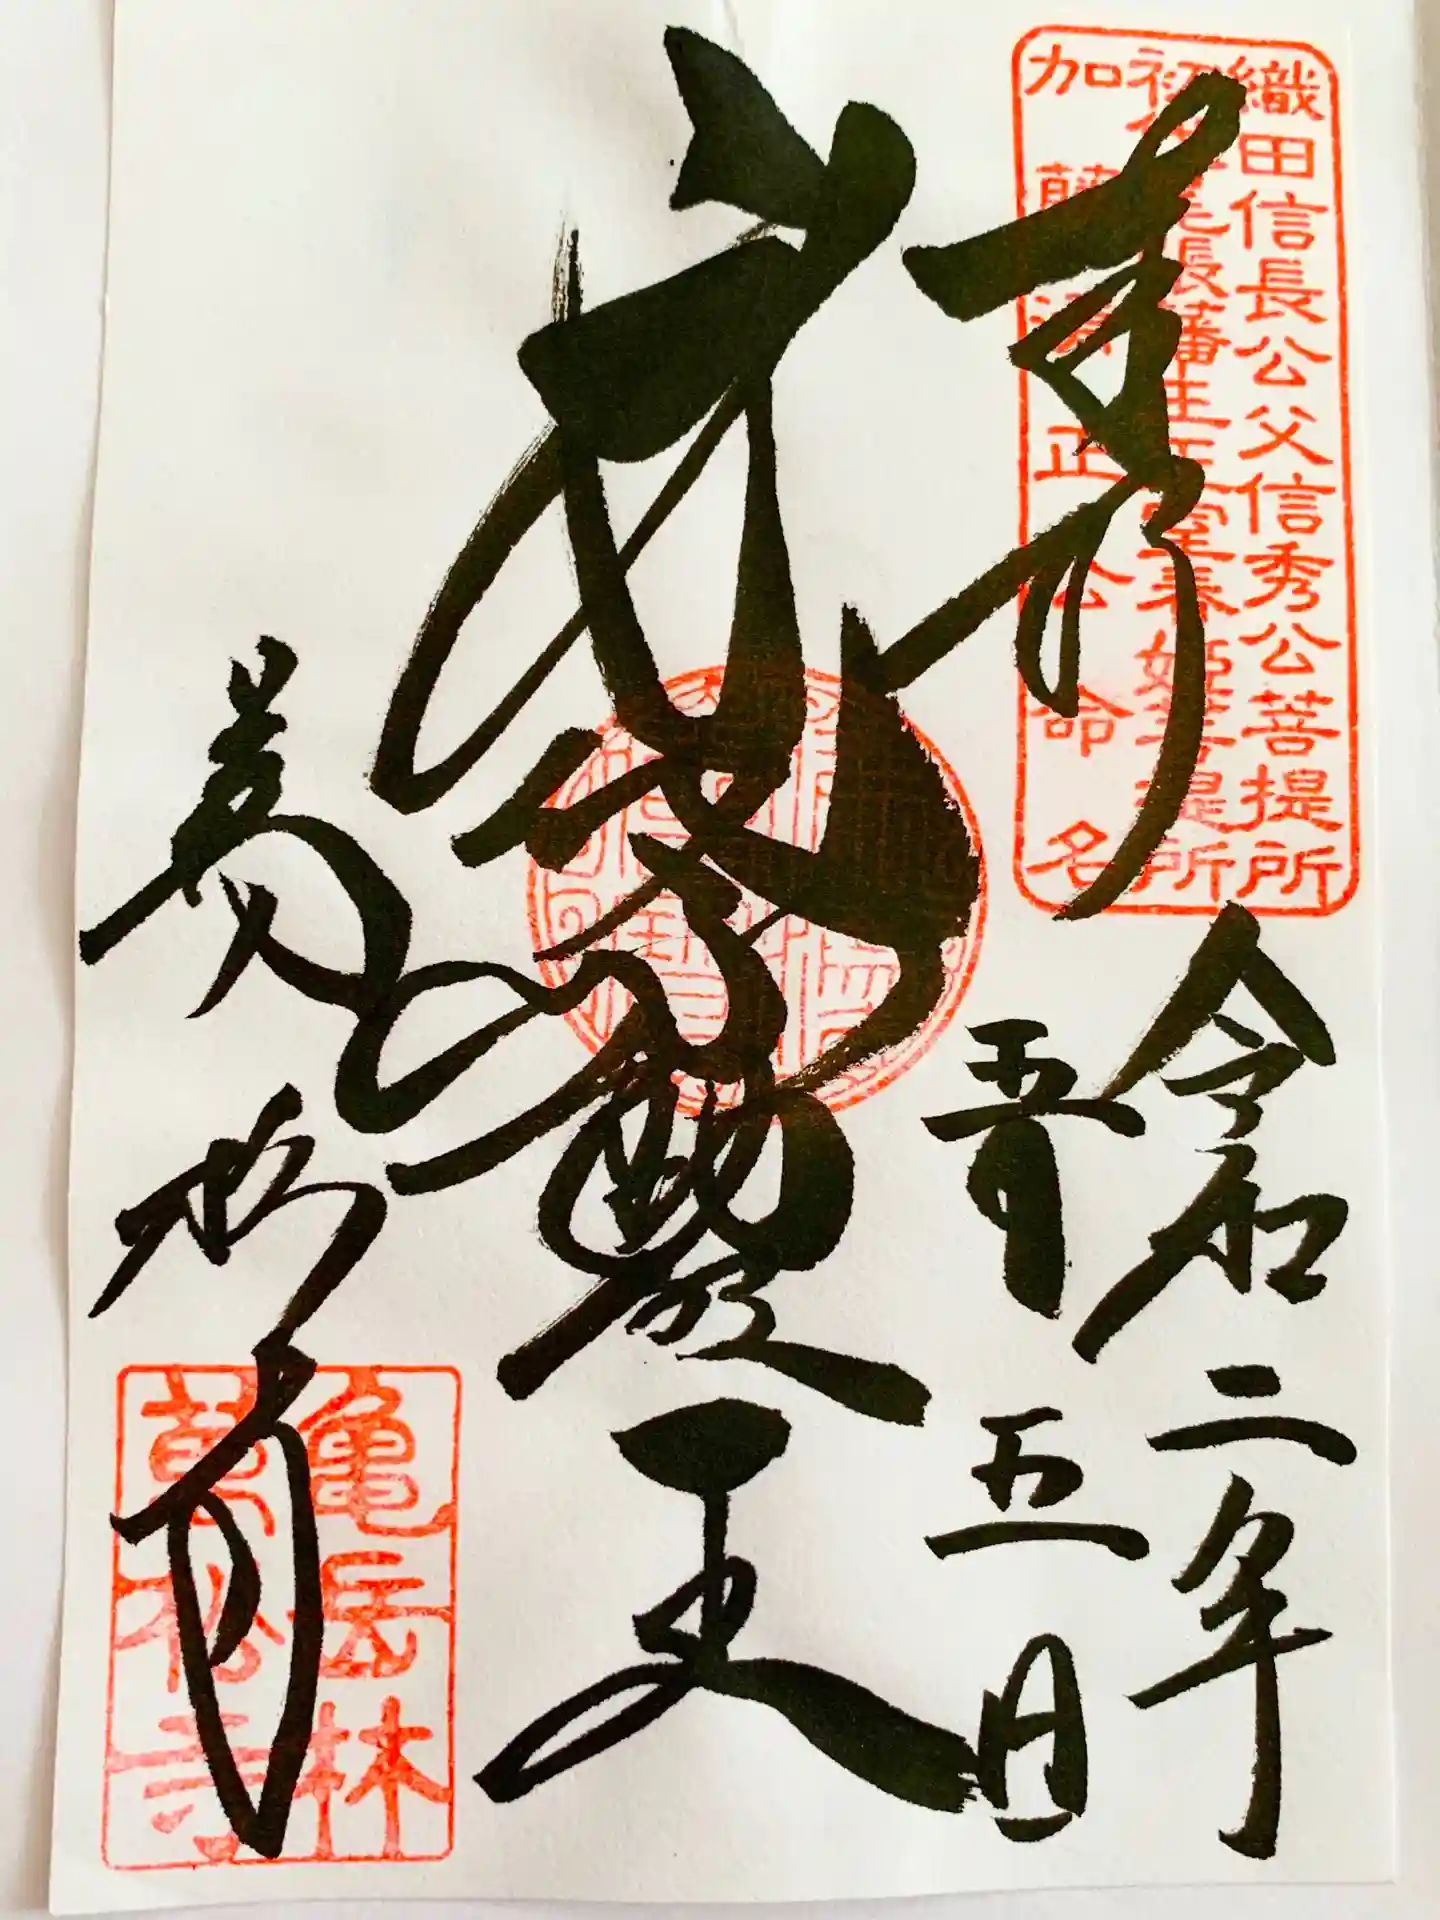 織田信長公父信秀公菩提所
初代尾張藩主正室春姫菩提所
加藤清正公命名
奉拝
令和二年
五月五日
萬松寺
亀岳林
萬松寺